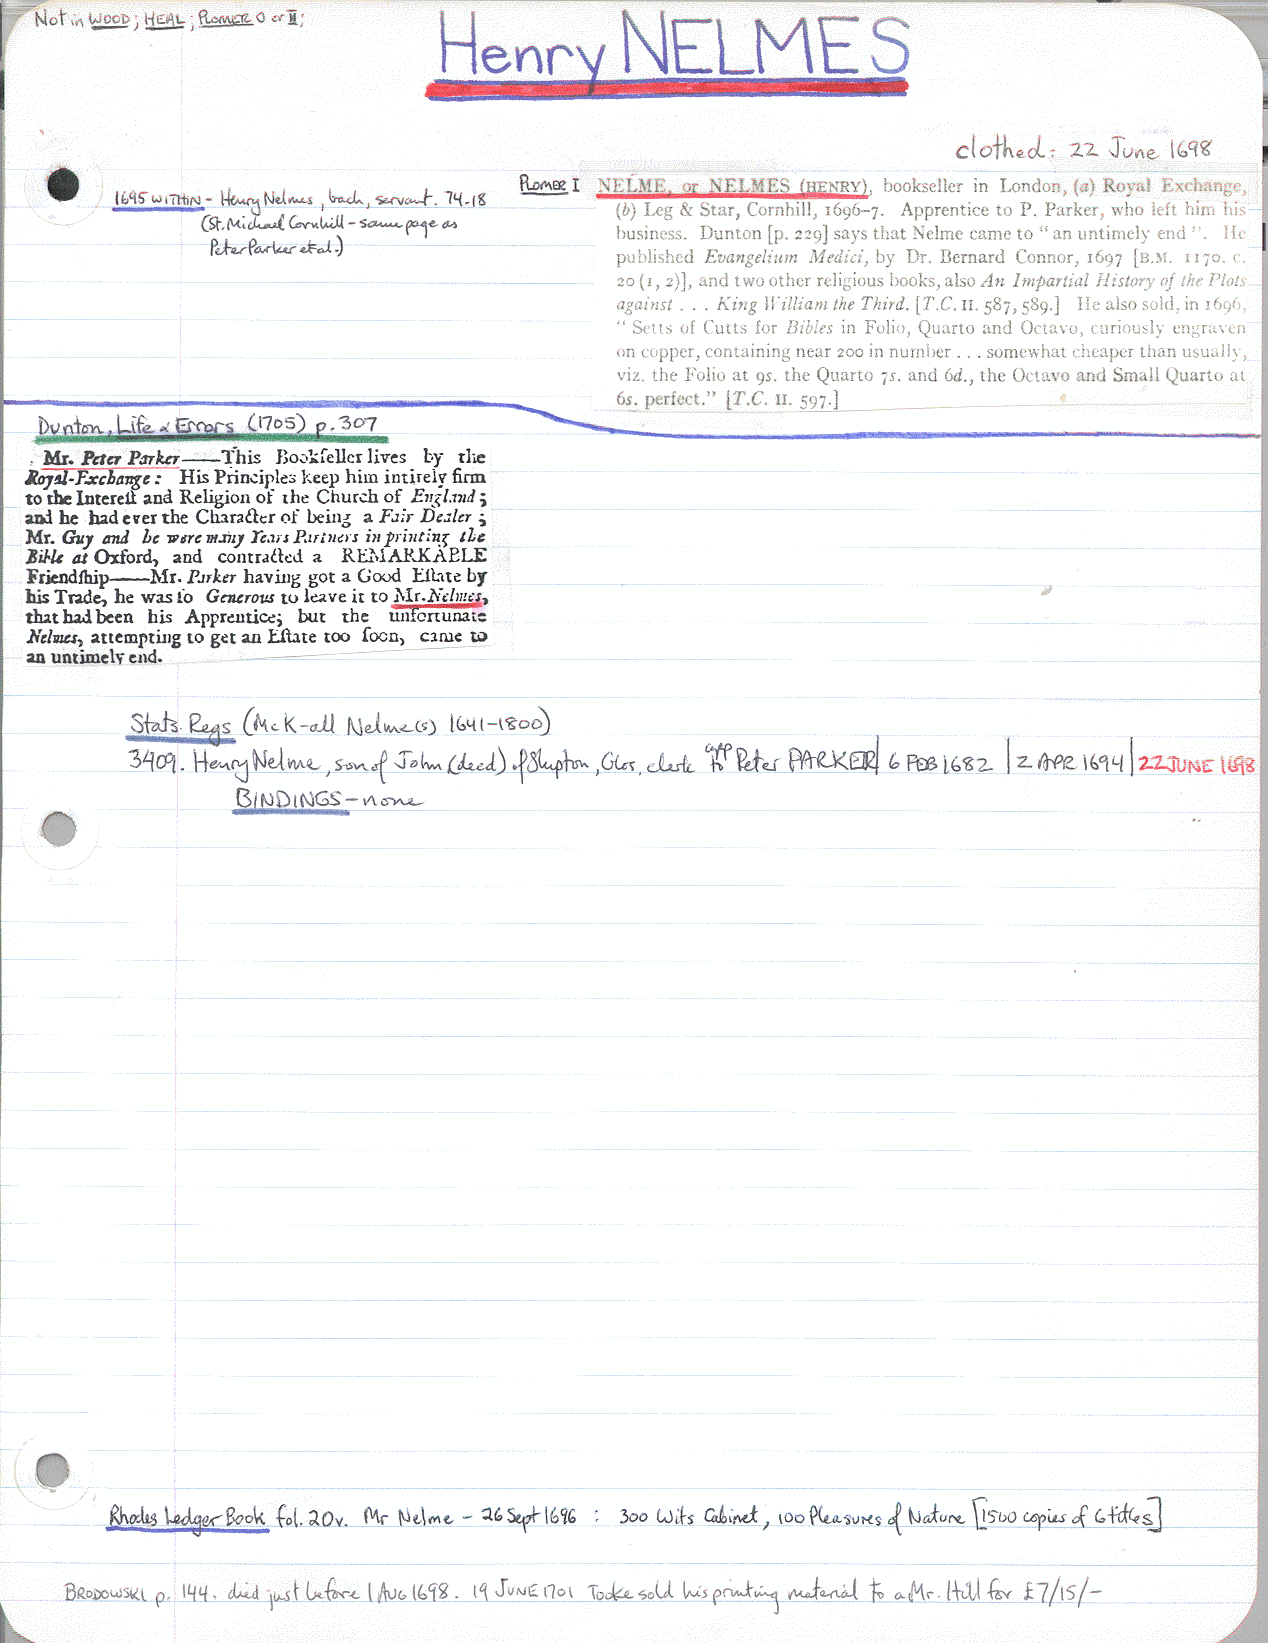 Not in WOOD; HEAL; PLOMER O or II;
Henry NELMES
clothed: 22 June 1698
1695 WITHIN - Henry Nelmes, bach, servant. 74.18
(St. Michael Cornhill - same page as
Peter Parker et al.)
PLOMER I NELME, or NELMES (HENRY), bookseller in London, (a) Royal Exchange,
(b) Leg & Star, Cornhill, 1696-7. Apprentice to P. Parker, who left him his
business. Dunton [p. 229] says that Nelme came to "an untimely end". He
published Evangelium Medici, by Dr. Bernard Connor, 1697 [B.M. 1170. c.
20 (1, 2)], and two other religious books, also An Impartial History of the Plots
against . . . King William the Third. [T.C. II. 587, 589.] He also sold, in 1696,
" Setts of Cutts for Bibles in Folio, Quarto and Octavo, curiously engraven
on copper, containing near 200 in number . . . somewhat cheaper than usually,
viz. the Folio at 9s. the Quarto 7s. and 6d., the Octavo and Small Quarto at
6s. perfect." [T.C. II. 597.]
Dunton, Life & Errors (1705) p. 307
Mr. Peter Parker——This Bookſeller lives by the
Royal-Exchange: His Principles keep him intirely firm
to the Intereſt and Religion of the Church of England;
and he had ever the Character of being a Fair Dealer;
Mr. Guy and he were many Years Partners in printing the
Bible at Oxford, and contracted a REMARKABLE
Friendſhip——Mr. Parker having got a Good Eſtate by
his Trade, he was ſo Generous to leave it to Mr. Nelmes,
that had been his Apprentice; but the unfortunate
Nelmes, attempting to get an Eſtate too ſoon, came to
an untimely end.
Stats. Regs (McK-all Nelme(s) 1641-1800)
3409. Henry Nelme, son of John (decd) of Shipton, Glos, clerk app to Peter PARKER | 6 FEB 1682 | 2 APR 1694 | 22 JUNE 1698
BINDINGS - none
Rhodes Ledger Book fol. 20v. Mr Nelme - 26 Sept 1696 : 300 Wits Cabinet, 100 Pleasures of Nature [1500 copies of 6 titles]
BRODOWSKI p. 144. died just before 1 AUG 1698. 19 JUNE 1701 Tooke sold his printing material to a Mr. Hill for £7/15/-